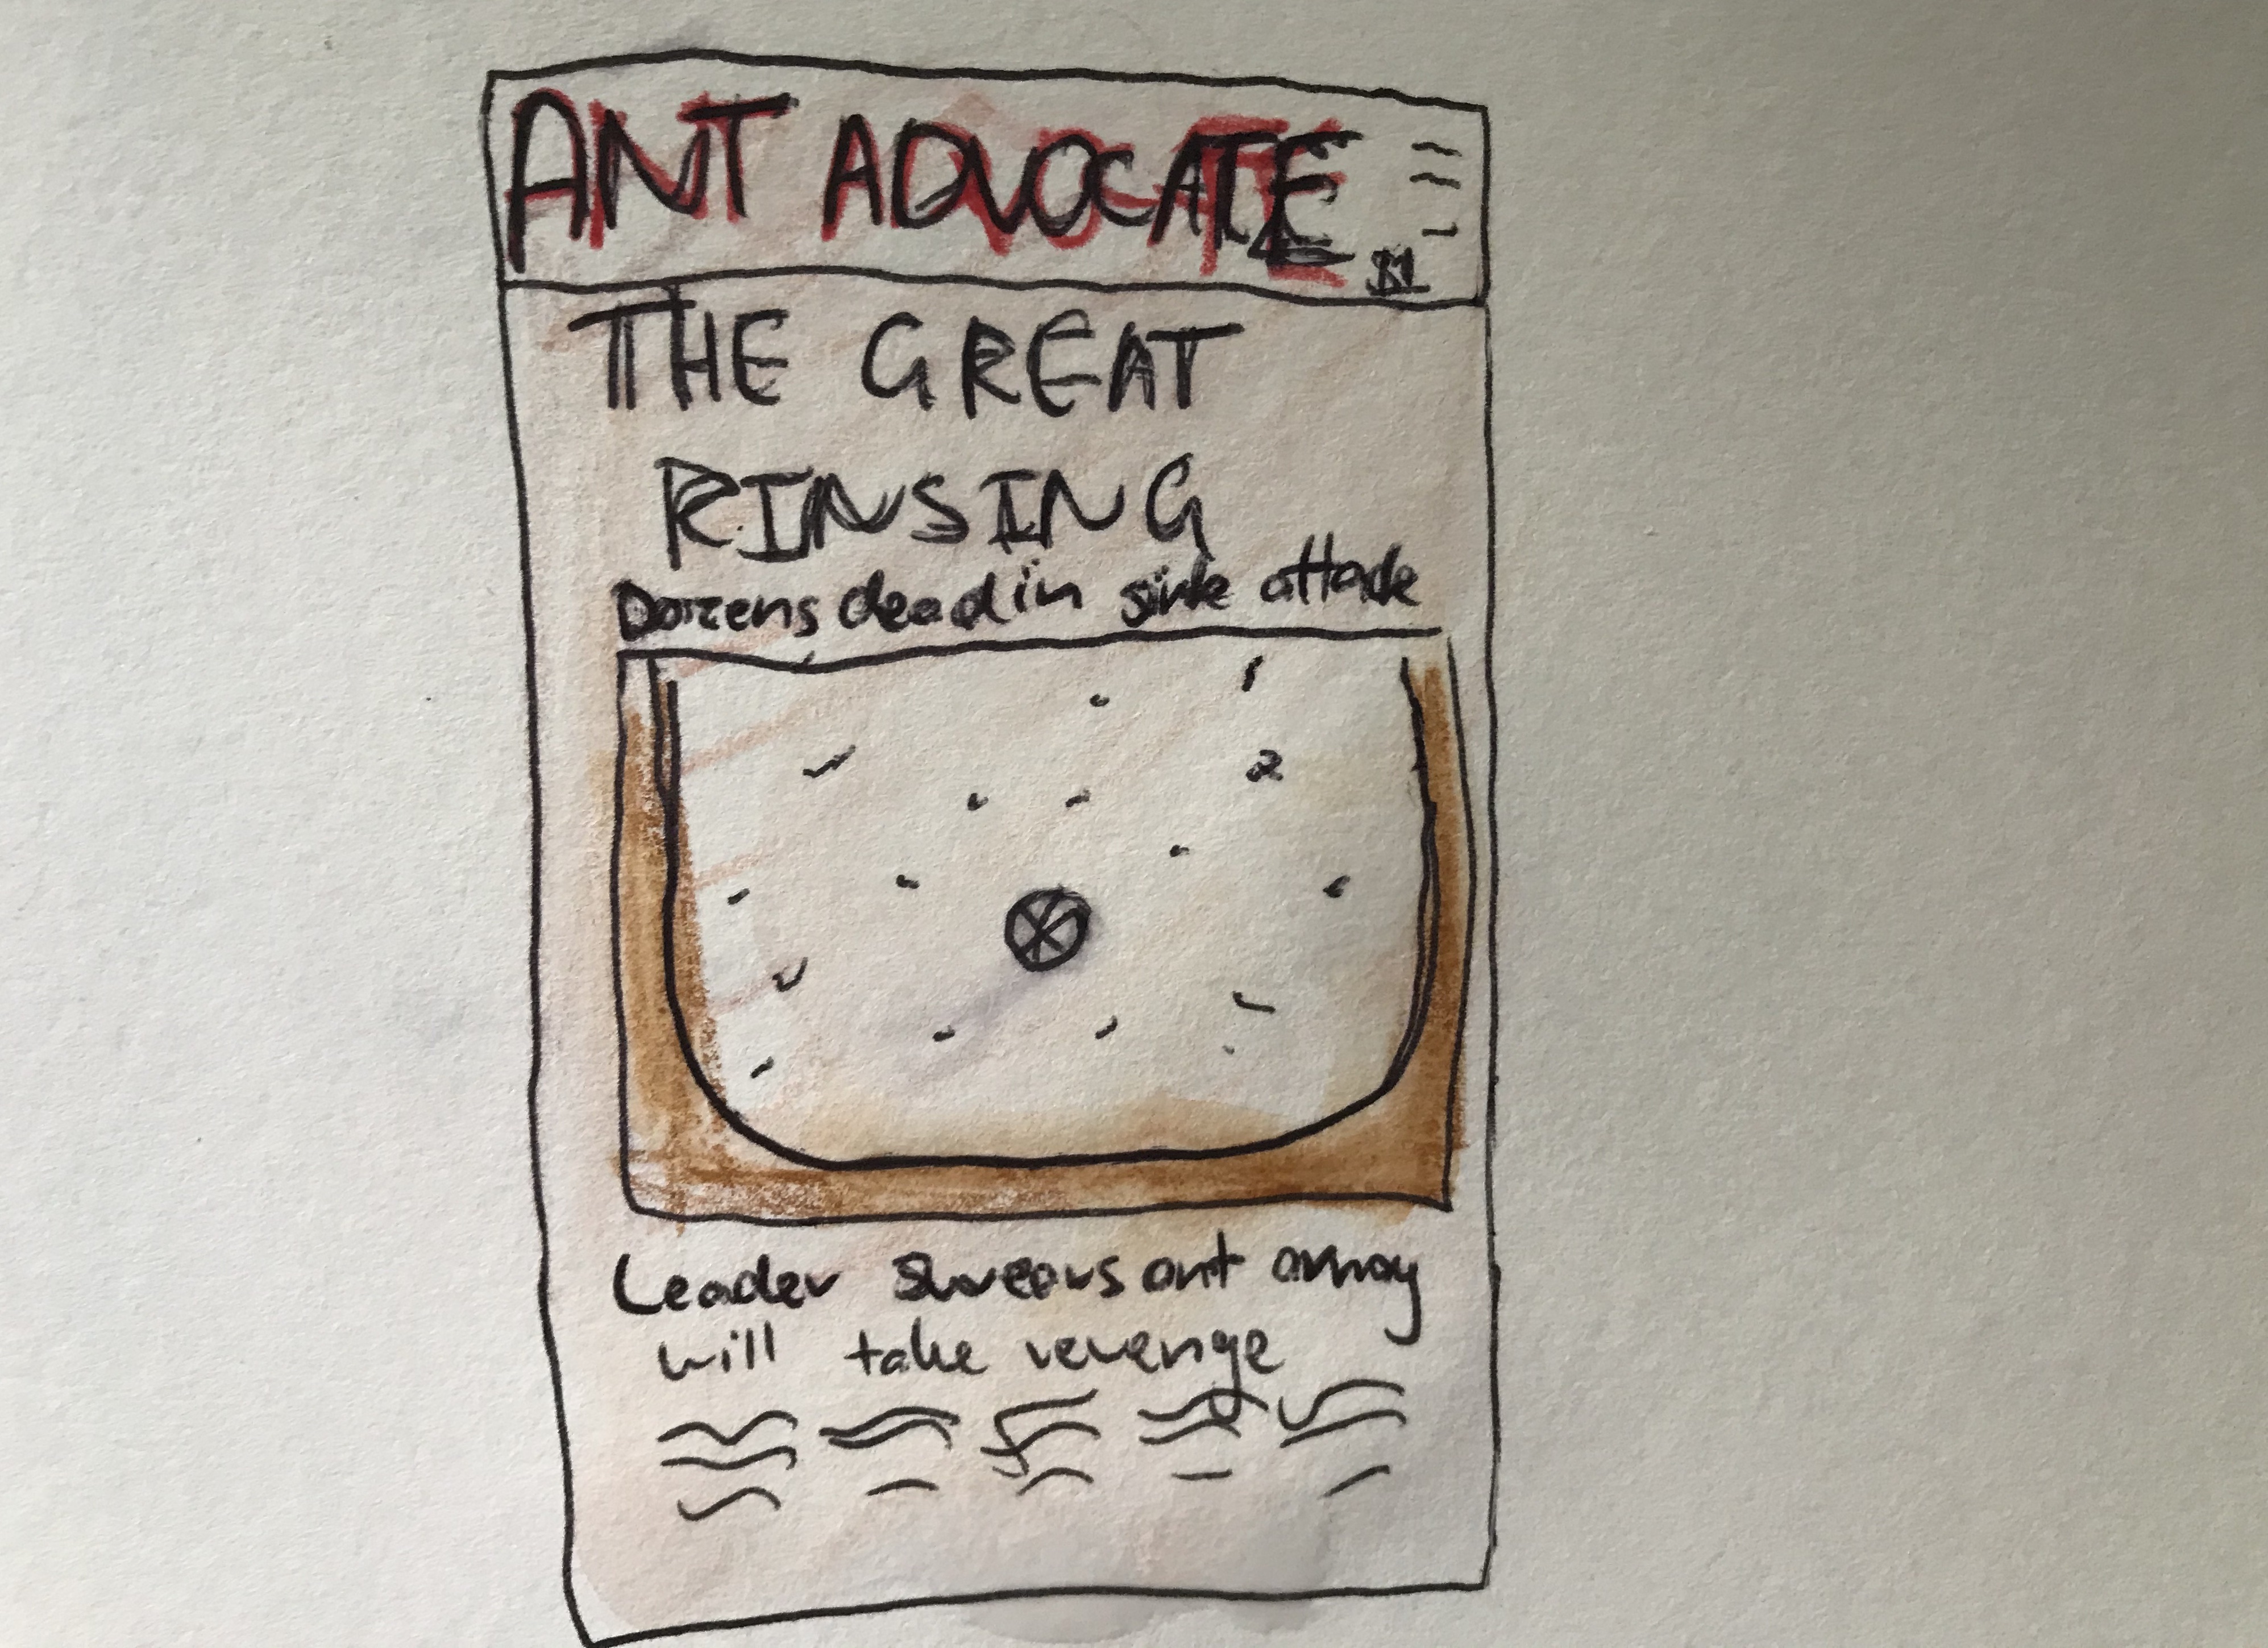 ANT ADVOCATE
$1
THE GREAT
RINSING
Dozens dead in sink attack
Leader swears ant army
will take revenge